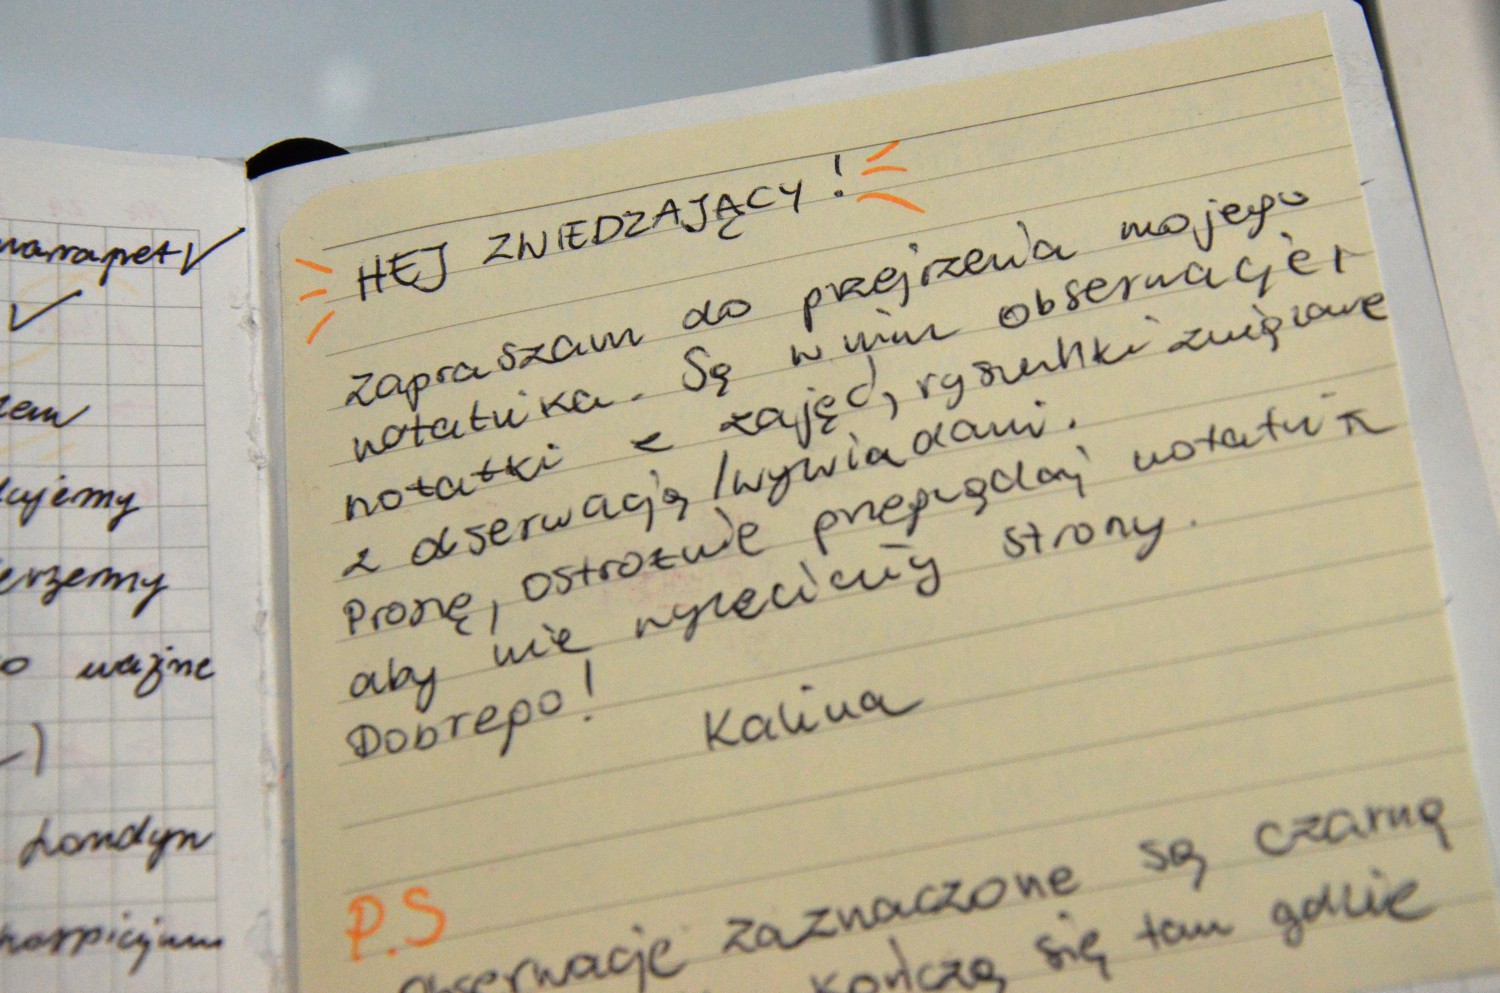 warrapet
zem
ujemy
erzemy
o ważne
)
Londyn
hospicjum
HEJ ZWIEDZAJĄCY!
Zapraszam do przejrzenia mojego
notatnika. Są w nim obserwacje +
notatki z zajęć, rysunki związane
z obserwacją / wywiadami.
Proszę, ostrożnie przeglądaj notatnik
aby nie wyleciały strony.
Dobrego! Kalina
P.S
obserwacje zaznaczone są czarną
kończą się tam gdzie